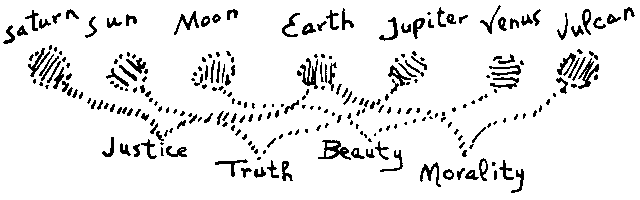 Saturn Sun Moon Earth Jupiter Venus Vulcan
Justice Truth Beauty Morality